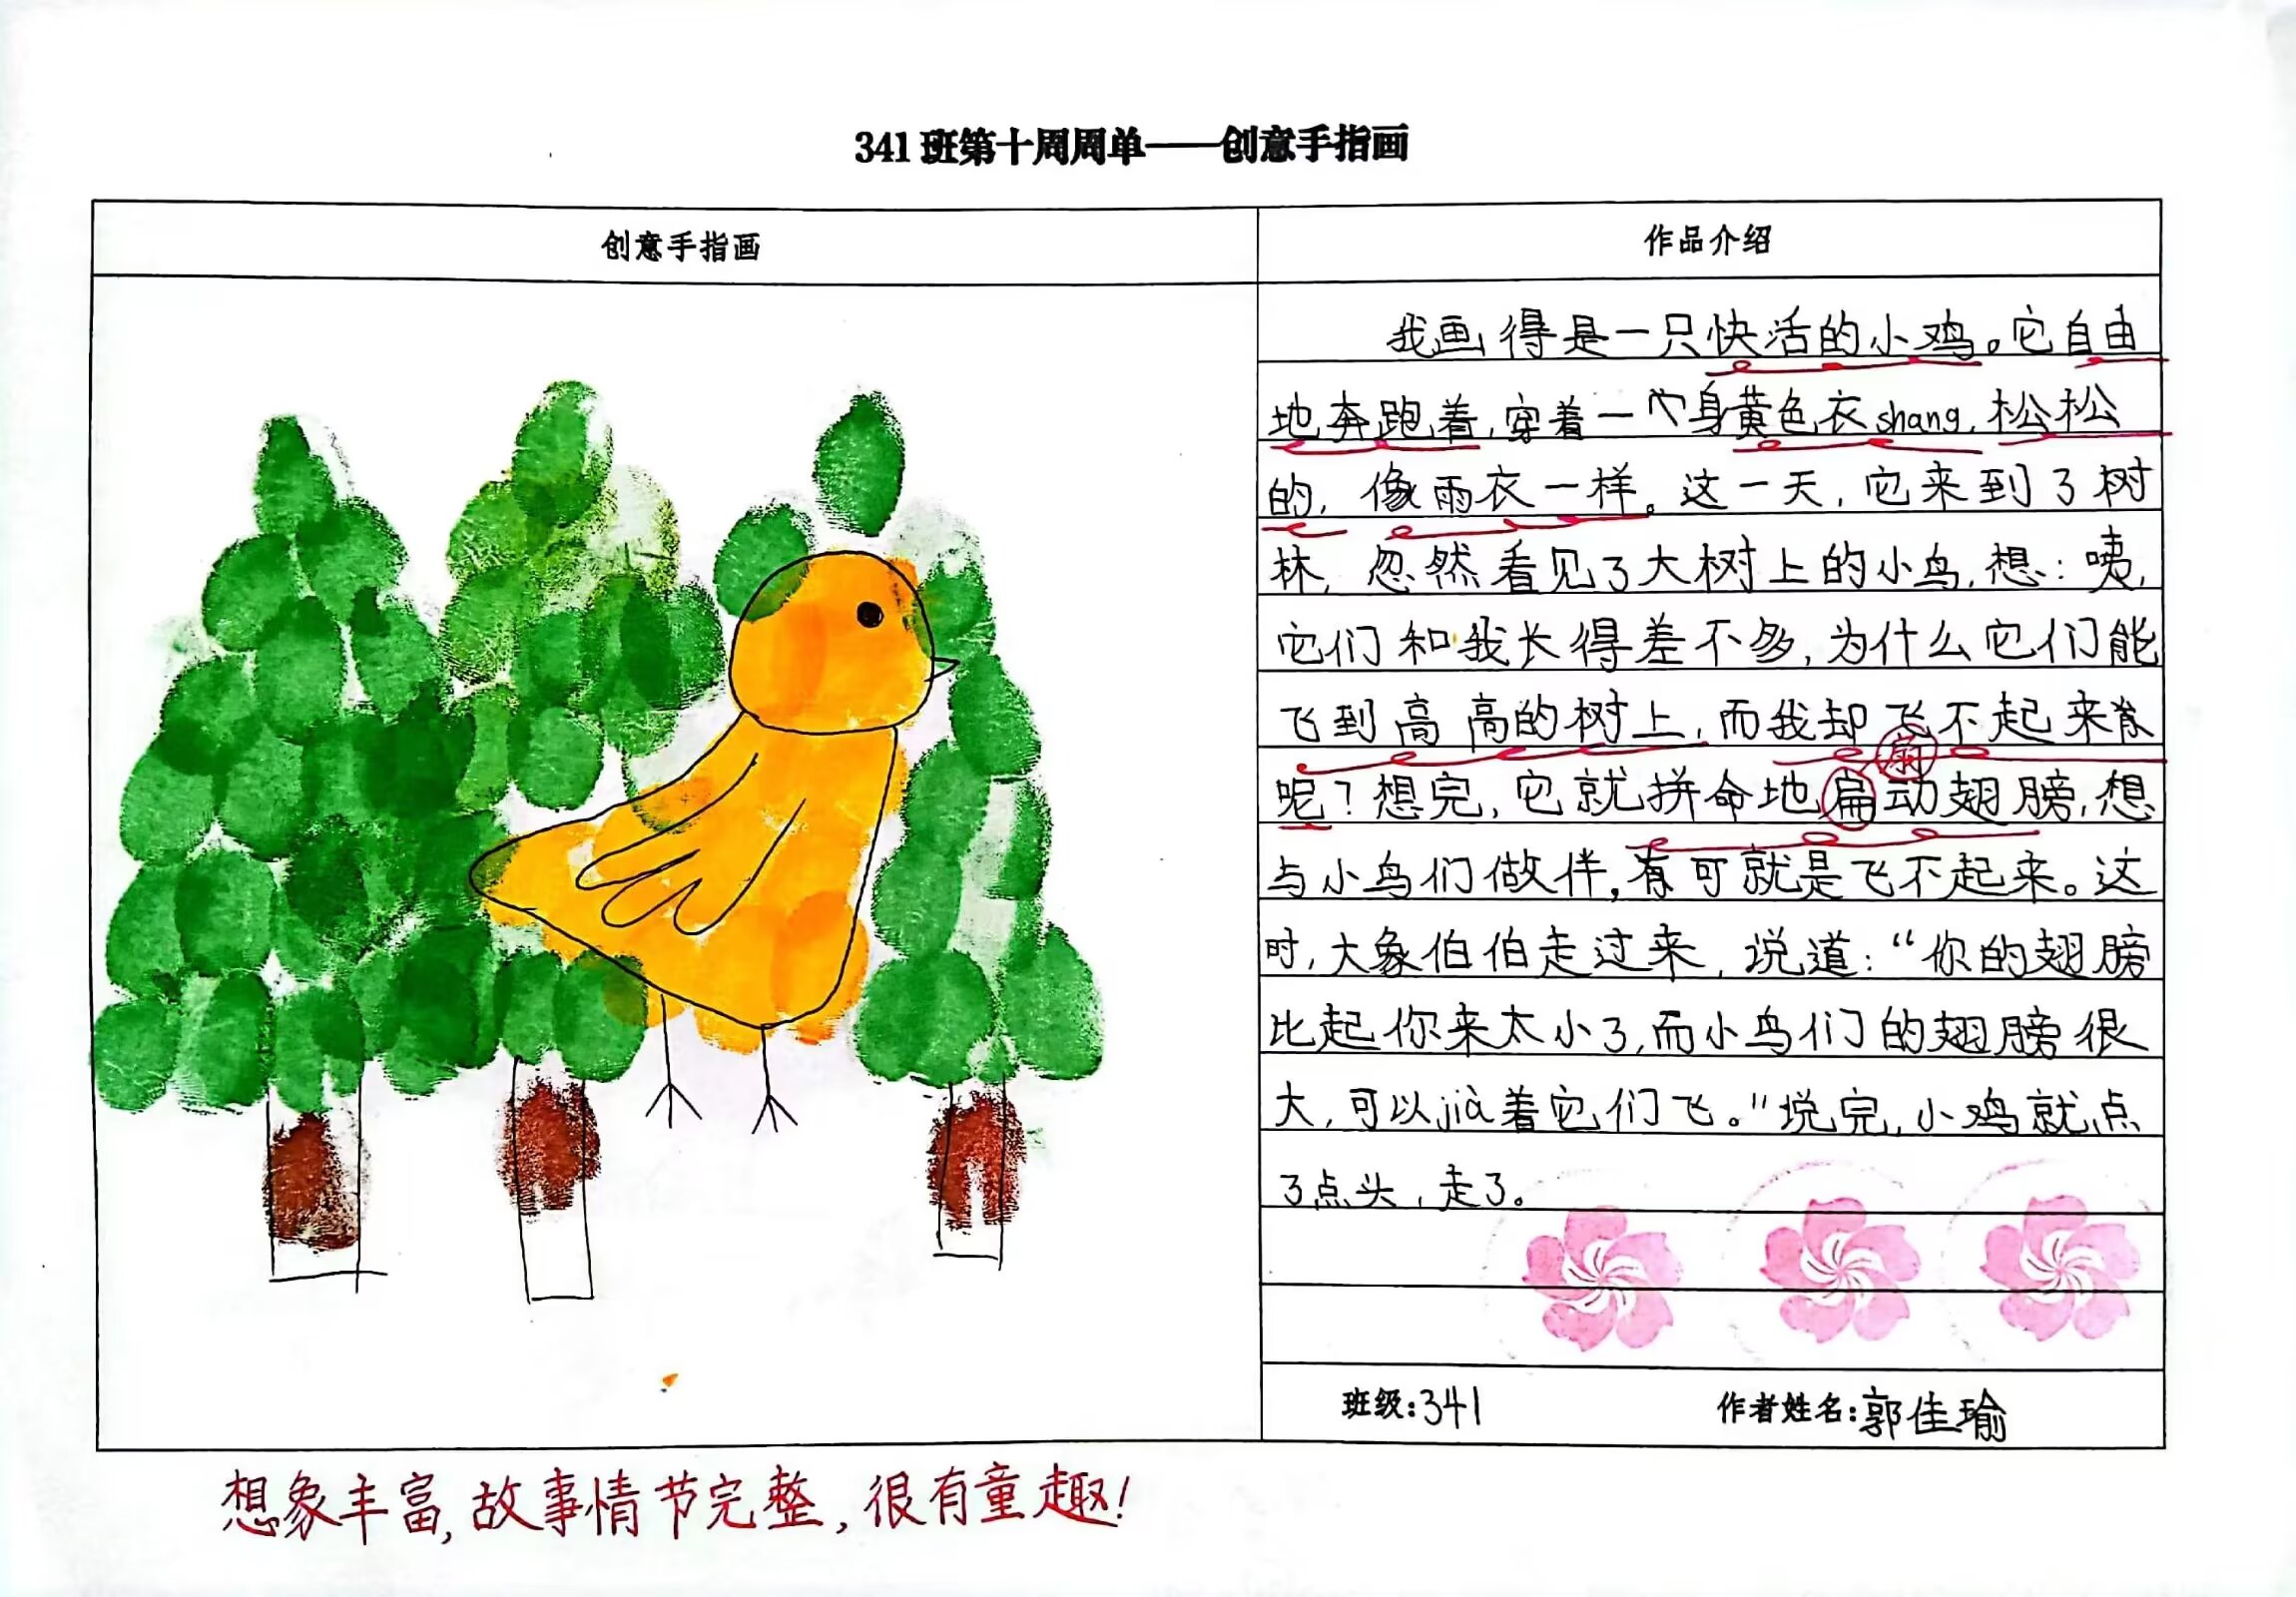 341班第十周周单——创意手指画
创意手指画
作品介绍
我画得是一只快活的小鸡。它自由
地奔跑着,穿着一身黄色衣shang,松松
的,像雨衣一样。这一天,它来到了树
林,忽然看见了大树上的小鸟,想:咦,
它们和我长得差不多,为什么它们能
飞到高高的树上,而我却飞不起来
扇
呢?想完,它就拼命地扁动翅膀,想
与小鸟们做伴,可就是飞不起来。这
时,大象伯伯走过来,说道:“你的翅膀
比起你来太小了,而小鸟们的翅膀很
大,可以jià着它们飞。”说完,小鸡就点
了点头,走了。
班级:341 作者姓名:郭佳瑜
想象丰富,故事情节完整,很有童趣!